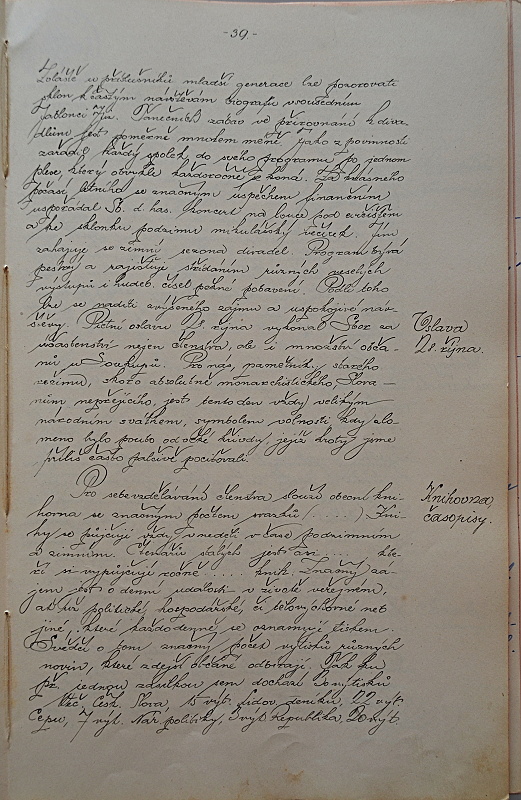 -39-
Zvláště u příslušníků mladší generace lze pozorovati
sklon k častým návštěvám biografu v sousedním
Jablonci n/J. Tanečních zábav ve přirovnání k diva-
dlům jest poměrně mnohem méně. Jako z povinnosti
zařadí každý spolek do svého programu po jednom
plese, který obvykle každoročně se koná. Za krásného
počasí letního se značným úspěchem finančním
uspořádal Sb. d. has. koncert na louce pod cvičištěm
a ke sklonku podzimu mikulášský večírek. Tím
zahajuje se zimní sezona divadel. Program bývá
pestrý a zajišťuje střídáním různých veselých
výstupů i hudeb. čísel pěkné pobavení. Podle toho
lze se nadíti zvýšeného zájmu a uspokojivé náv-
štěvy. Pietní oslavu 28. října vykonal Sbor za
účastenství nejen členstva, ale i množství obča-
nů u Soukupů. Pro nás, pamětník. starého
režimu, skoro absolutně monarchistického, Slova-
nům nepřejícího, jest tento den vždy velikým
národním svátkem, symbolem volnosti, kdy zlo-
meno bylo pouto odvěké křivdy, jejíž hroty jsme
příliš často palčivě pociťovali.
Oslava
28. října.
Pro sebevzdělávání členstva slouží obecní kni-
hovna se značným počtem svazků (......) Kni-
hy se půjčují vždy v neděli v čase podzimním
a zimním. Čtenářů stálých jest asi .... kte-
ří si vypůjčují ročně ..... knih. Značný zá-
jem jest o denní události v životě veřejném,
ať už politické, hospodářské, či tělovýchovné neb
jiné, které každodenně se oznamují tiskem.
Svědčí o tom značný počet výtisků různých
novin, které zdejší občané odbírají. Tak ku
př. jednou zásilkou sem dochází 30 výtisků
Več. Česk. Slova, 15 výt. Lidov. deníku, 22 výt.
Cepu, 7 výt. Nár. politiky, 3 výt. Republika, 20 výt.
Knihovna,
časopisy.